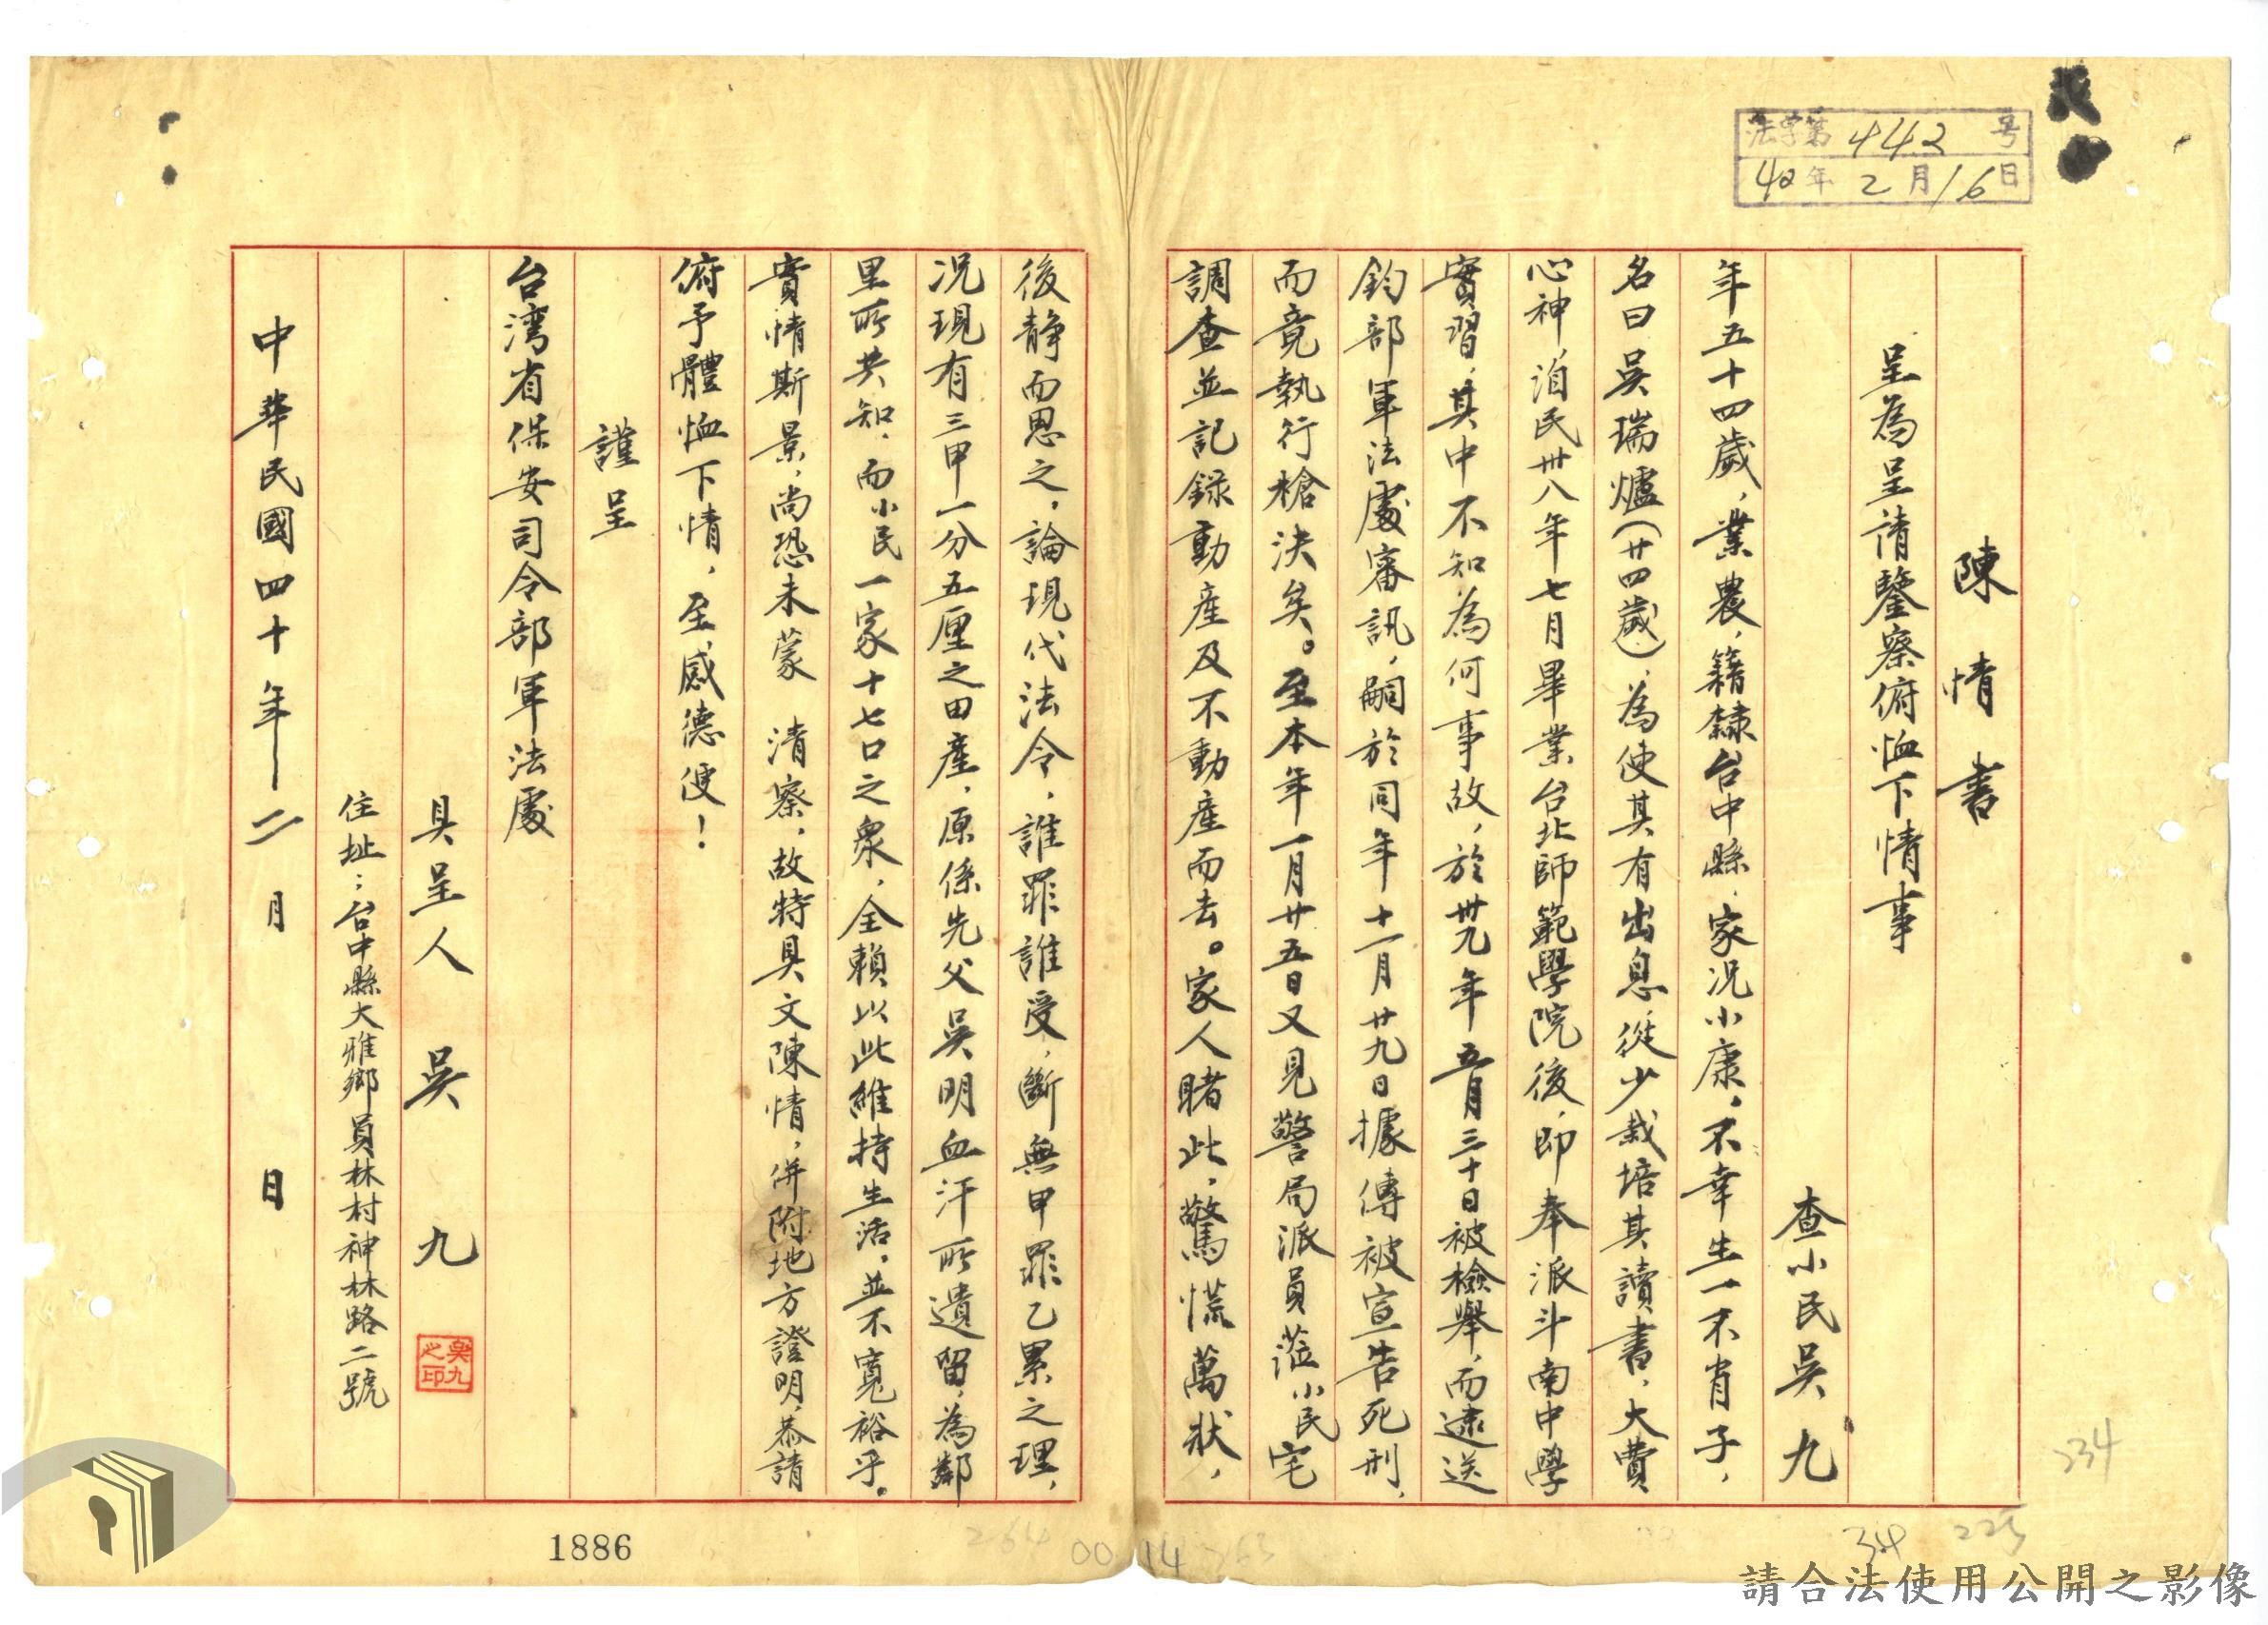 法字第442号
40年2月16日
陳情書
呈為呈請鑒察俯恤下情事
查小民吳九
年五十四歲，業農，籍隸台中縣，家況小康，不幸生一不肖子，
名曰吳瑞爐（廿四歲），為使其有出息，從少栽培其讀書，大費
心神，洎民卅八年七月畢業台北師範學院後，即奉派斗南中學
實習，其中不知為何事故，於卅九年五月三十日被檢舉，而逮送
鈞部軍法處審訊，嗣於同年十一月廿九日據傳被宣告死刑，
而竟執行槍決矣。至本年一月廿五日又見警局派員蒞小民宅
調查並記錄動產及不動產而去。家人睹此，驚慌萬狀，
後靜而思之，論現代法令，誰罪誰受，斷無甲罪乙累之理，
況現有三甲一分五厘之田產，原係先父吳明血汗所遺留，為鄰
里所共知，而小民一家十七口之眾，全賴以此維持生活，並不寬裕乎。
實情斯景，尚恐未蒙　清察，故特具文陳情，併附地方證明，恭請
俯予體恤下情，至感德便！
謹呈
台湾省保安司令部軍法處
具呈人　吳　九
吳九之印
住址：台中縣大雅鄉員林村神林路二號
中華民國四十年二月　日
1886
00 14
34
225
234
263
請合法使用公開之影像